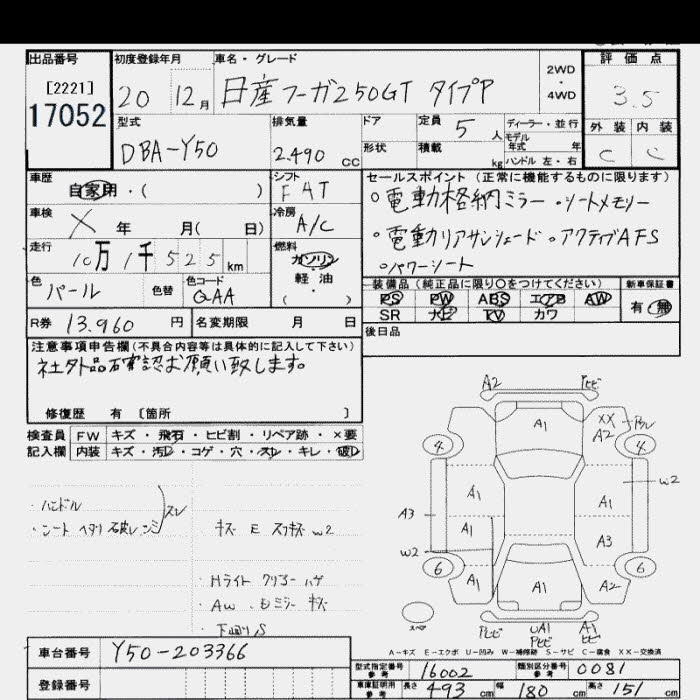 出品番号
[2221]
17052
初度登録年月
20 12月
車名・グレード
日産フーガ250GT タイプP
2WD
・
4WD
評価点
3.5
外装 内装
C C
型式
DBA-Y50
排気量
2.490 cc
ドア
形状
定員 5 人
積載 kg
ディーラー・並行
モデル
年式 年
ハンドル 左・右
車歴
自家用・( )
シフト
FAT
車検
X 年 月( 日)
冷房
A/C
走行
10万1千525km
燃料
ガソリン
軽・油
( )
色
パール
色替
色コード
QAA
R券 13.960 円
名変期限 月 日
セールスポイント(正常に機能するものに限ります)
・電動格納ミラー・シートメモリー
・電動リアサンシェード・アクティブAFS
・パワーシート
装備品(純正品に限り○をつけてください)
新車保証書
PS PW ABS エアB AW
SR ナビ TV カワ
有・無
後日品
注意事項申告欄(不具合内容等は具体的に記入して下さい)
社外品石確認お願い致します。
修復歴 有 〔箇所 〕
検査員
記入欄
FW キズ・飛石・ヒビ割・リペア跡・×要
内装 キズ・汚レ・コゲ・穴・スレ・キレ・破レ
・ハンドル
・シート ヘタリ 破レ シミ
スレ
キズ E スリキズ W2
・Hライト クリヨー ハゲ
・AW.Dミラー キズ
・下回りS
A2
A1
XX
A2
4
4
A1
A1
W2
A3
A1
A3
W2
6
6
A1
A1
A2
スペア
UA1
A1
A-キズ E-エクボ U-凹み W-補修跡 S-サビ C-腐食 XX-交換済
車台番号 Y50-203366
登録番号
型式指定番号
参考
16002
類別区分番号
参考
0081
車庫証明用
参考
長さ 493 cm 幅 180 cm 高さ 151 cm